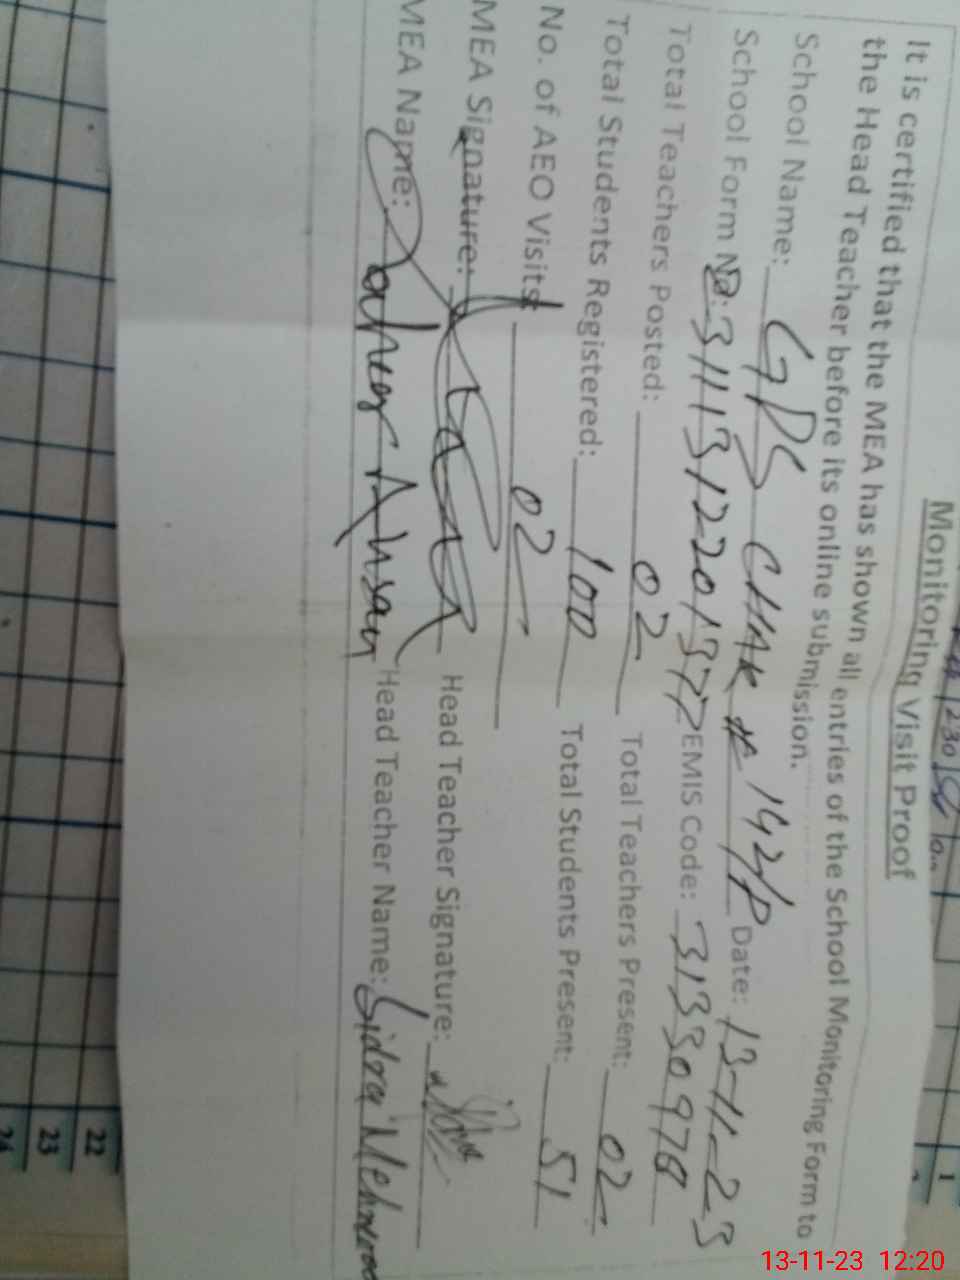 Monitoring Visit Proof
It is certified that the MEA has shown all entries of the School Monitoring Form to
the Head Teacher before its online submission.
School Name: GPS CHAK # 142/P Date: 13-11-23
School Form No: EMIS Code: 31330978
Total Teachers Posted: 02 Total Teachers Present: 02
Total Students Registered: 100 Total Students Present: 51
No. of AEO Visits: 02
MEA Signature: Head Teacher Signature:
MEA Name: Ahsan Head Teacher Name: Sidra Mehmood
1
22
23
24
13-11-23 12:20